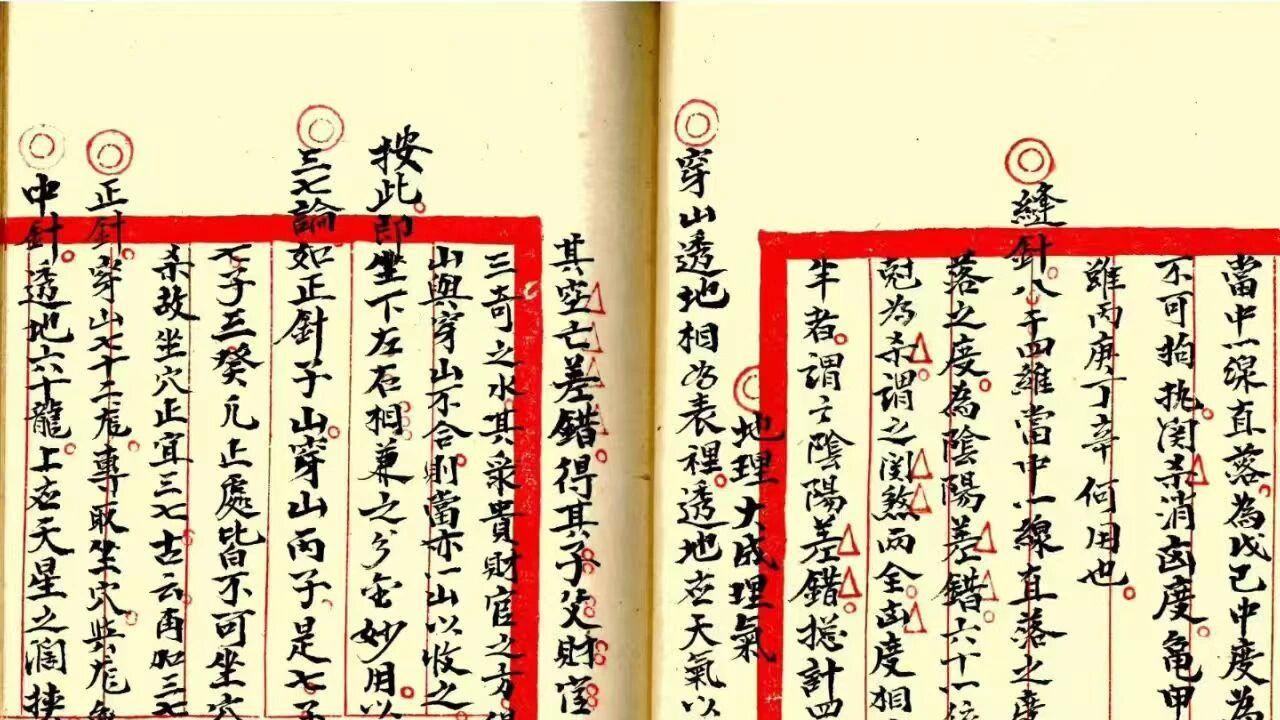 當中一線直落為戊己中度為
不可拘执関杀消凶度龜甲
雖丙庚丁辛何用也
縫針八干四維當中一線直落之度
落之度為陰陽差錯六十一
尅為杀謂之関煞兩全凶度相
半者謂之陰陽差錯摠計四
地理大成理氣
穿山透地相為表裡透地在天氣以
其空亡差錯得其子父財
三奇之水其衆貴財官之方
山與穿山不合則當亦一山以收之
按此即坐下左右相兼之分金妙用以
三七論如正針子山穿山丙子是七子
七子三癸凡止處皆不可坐穴
杀故坐穴正宜三七古云再加三七
正針穿山七十二龙專取坐穴與龙
中針透地六十龍上应天星之濶狹